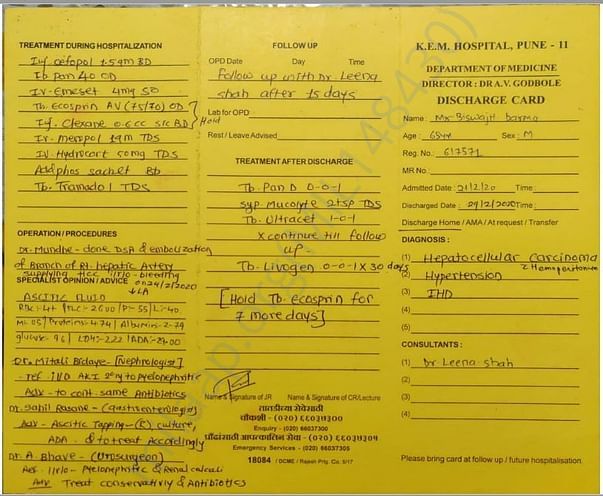 TREATMENT DURING HOSPITALIZATION
Inj cefopol 1.5gm BD
Tb pan 40 OD
IV. Emeset 4mg SD
Tb. Ecosprin AV (75/10) OD
Inj. Clexane 0.6cc s/c BD } Hold
IV. Meropol 1gm TDS
IV. Hydrocort 50mg TDS
Addphos sachet BD
Tb. Tramadol TDS
OPERATION / PROCEDURES
Dr. Mundhe - done DSA & embolization
of Branch of Rt. hepatic Artery
supplying HCC i/v/o - bleeding
on 24/2/2020
SPECIALIST OPINION / ADVICE
↓ LA
ASCITIC FLUID
RBC: 4+ | TLC - 2600 / P- 55 | L: 40
M: 05 | Proteins: 4.74 | Albumin: 2.79
glucose: 96 | LDH: 222 | ADA:
Dr. Mitali Bidaye - [Nephrologist]
- ref i/v/o AKI 2ry to pyelonephritis
Adv - to cont. same Antibiotics
Dr. Sahil Rasane - (gastroenterologist)
Adv - Ascitic Tapping - (R) culture,
ADA. & to treat Accordingly
Dr. A. Bhave - (Urosurgeon)
Ref. i/v/o - Pyelonephritis & Renal calculi
Adv Treat conservativly & Antibiotics
FOLLOW UP
OPD Date Day Time
Follow up with Dr. Leena
shah after 15 days
Lab for OPD
Rest / Leave Advised
TREATMENT AFTER DISCHARGE
Tb. Pan D 0-0-1
syp. Mucolyte 2tsp TDS
Tb. Ultracet 1-0-1
x continue till follow
up
Tb. Livogen 0-0-1 x 30 days
[Hold Tb. ecosprin for
7 more days]
Name & Signature of JR Name & Signature of CR/Lecture
तातडीच्या सेवेसाठी
चौकशी - (०२०) ६६०३७३००
Enquiry - (020) 66037300
Emergency Services - (020) 66037305
18084 / DCME / Rajesh Prtg. Co. 5/17
K.E.M. HOSPITAL, PUNE - 11
DEPARTMENT OF MEDICINE
DIRECTOR : DR A.V. GODBOLE
DISCHARGE CARD
Name : Mr Biswajit barma
Age : 65yr Sex : M
Reg. No.: 617571
MR No.
Admitted Date : 21/2/20 Time :
Discharged Date : 29/2/2020 Time :
Discharge Home / AMA / At request / Transfer
DIAGNOSIS :
(1) Hepatocellular carcinoma
c Hemoperitoneum
(2) Hypertension
(3) IHD
(4)
(5)
CONSULTANTS :
(1) Dr Leena shah
(2)
(3)
(4)
Please bring card at follow up / future hospitalisation.